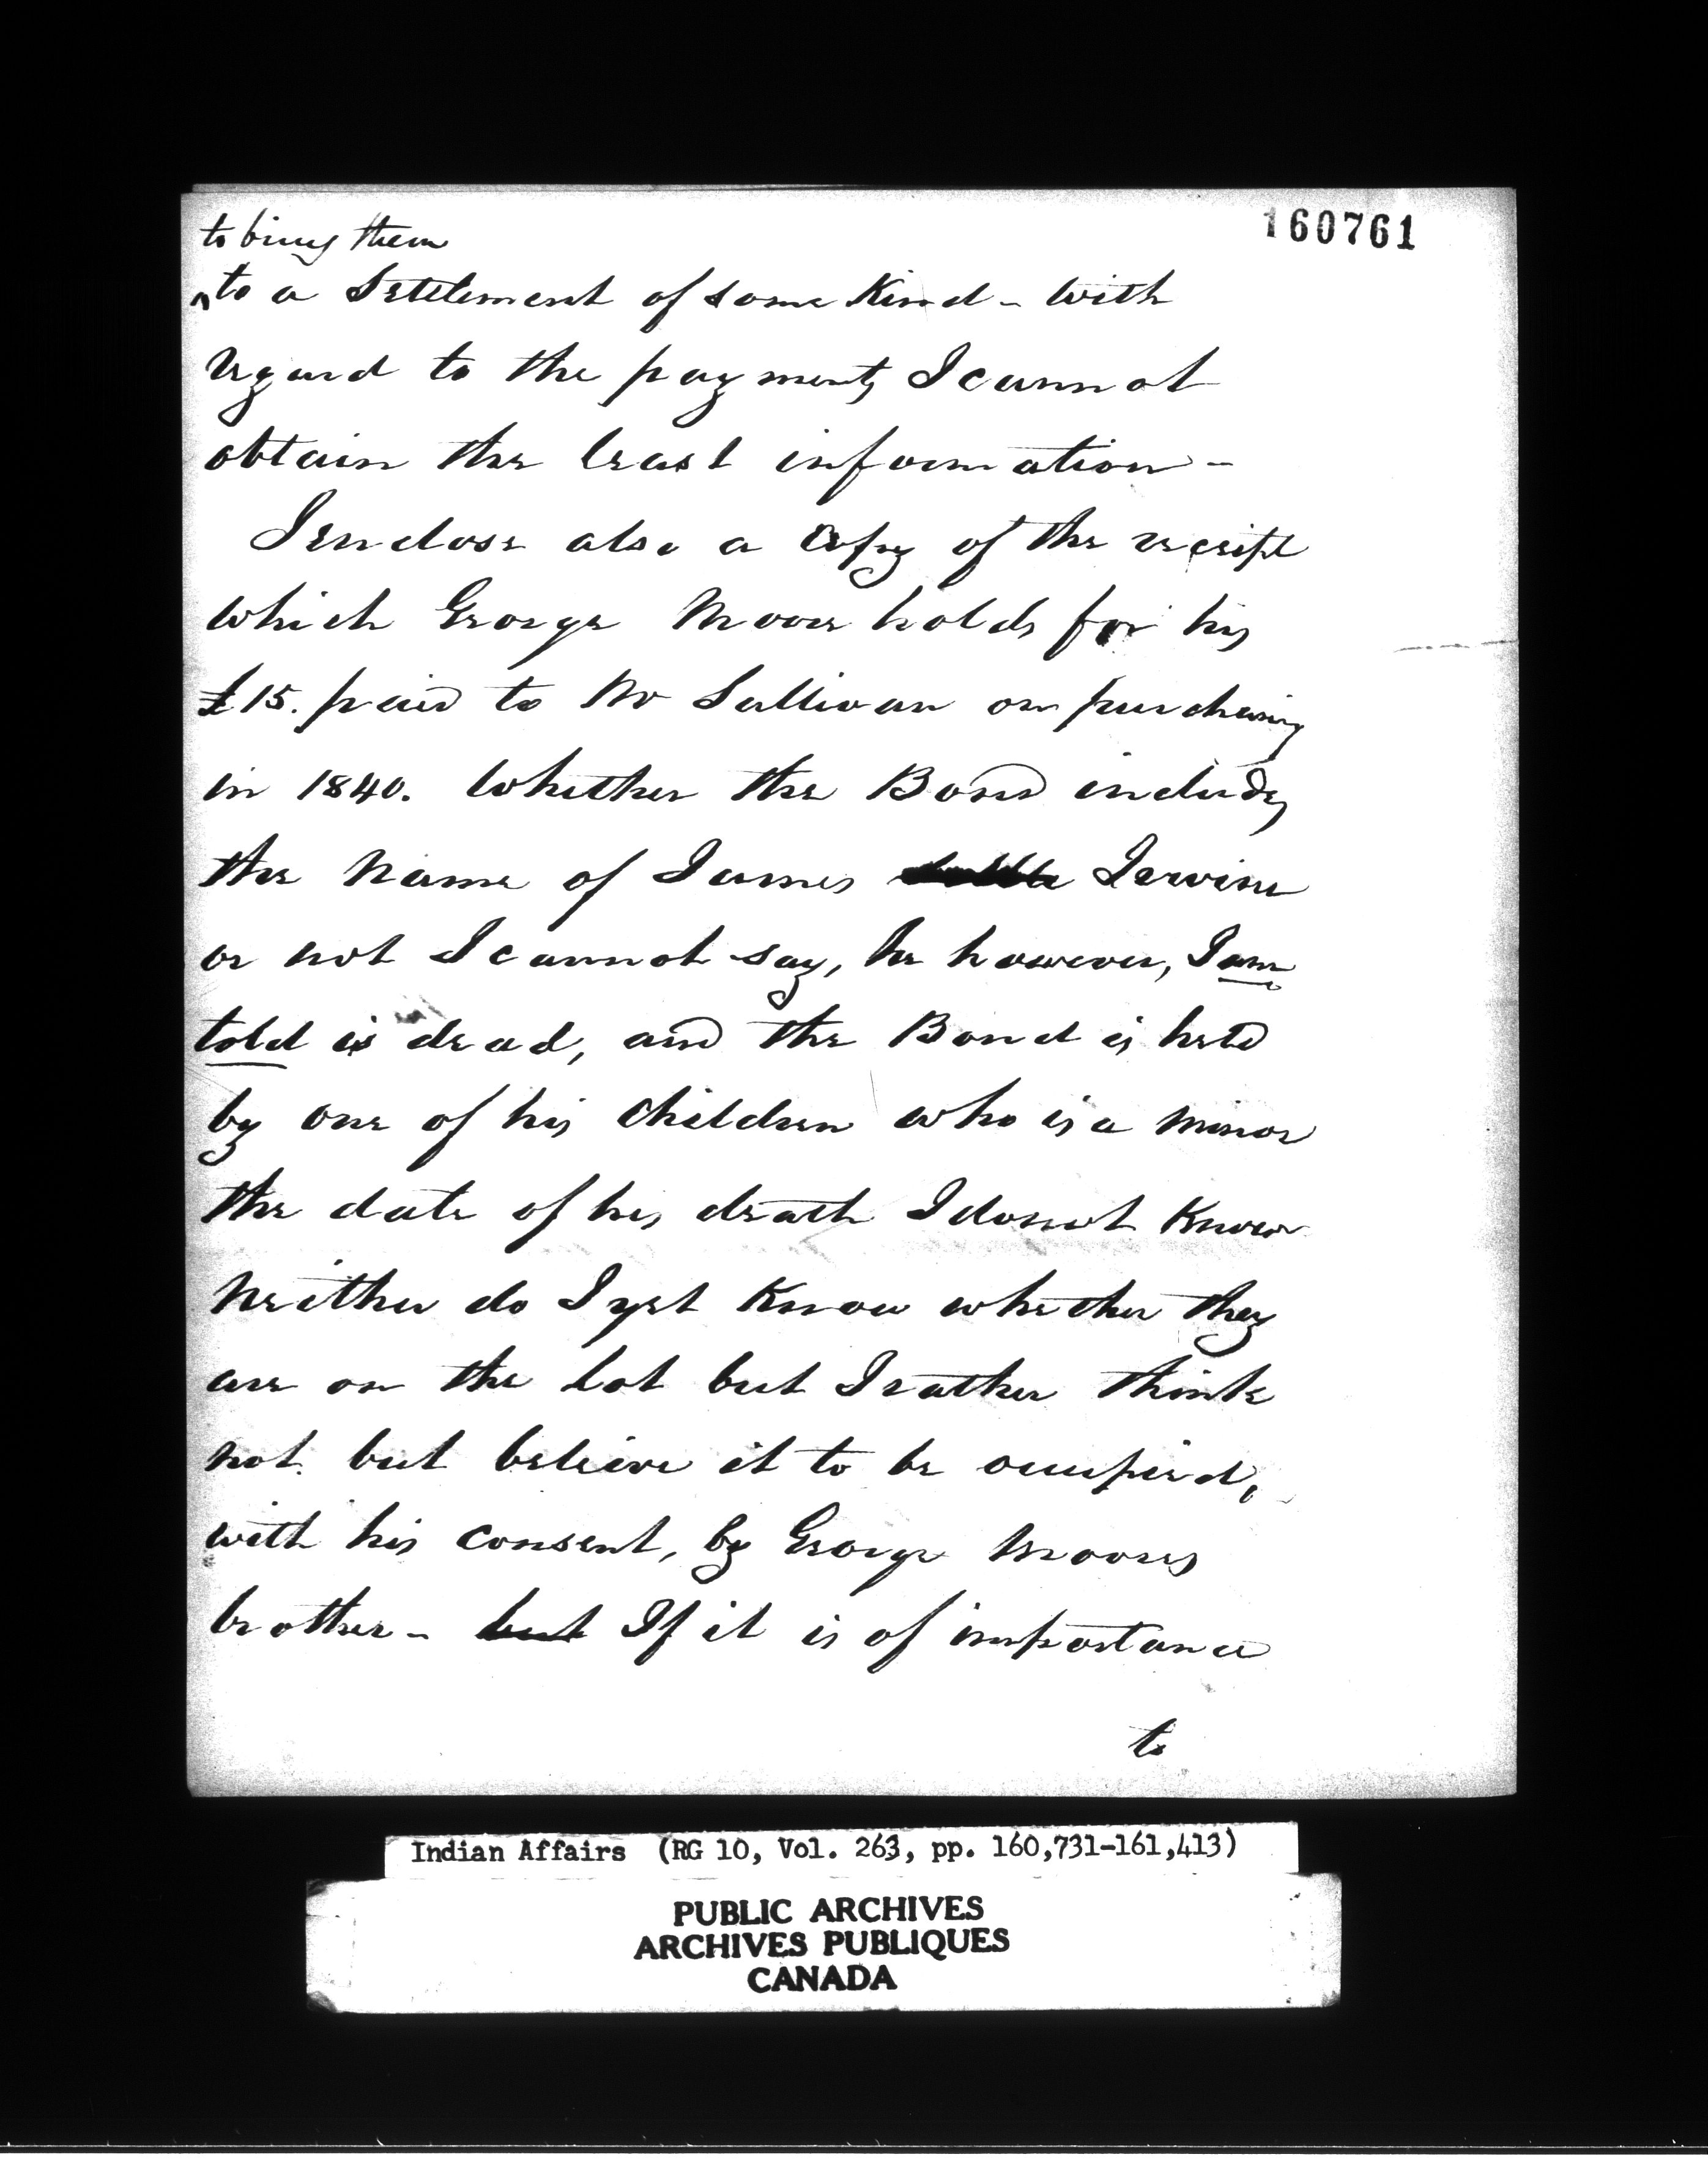 160761
to bring them
‸to a Settlement of some Kind - With
regard to the payments I cannot
obtain the least information -
I enclose also a Copy of the receipt
which George Moore holds for his
£15. paid to Mr Sullivan on purchasing
in 1840. Whether the Bond includes
the name of James Iervine
or not I cannot say, he however, I am
told is dead, and the Bond is held
by one of his children who is a minor
the date of his death I do not Know
Neither do I yet Know whether they
are on the lot but I rather think
not. but believe it to be occupied,
with his consent, by George Moores
brother - but If it is of importance
to
Indian Affairs (RG 10, Vol. 263, pp. 160,731-161,413)
PUBLIC ARCHIVES
ARCHIVES PUBLIQUES
CANADA